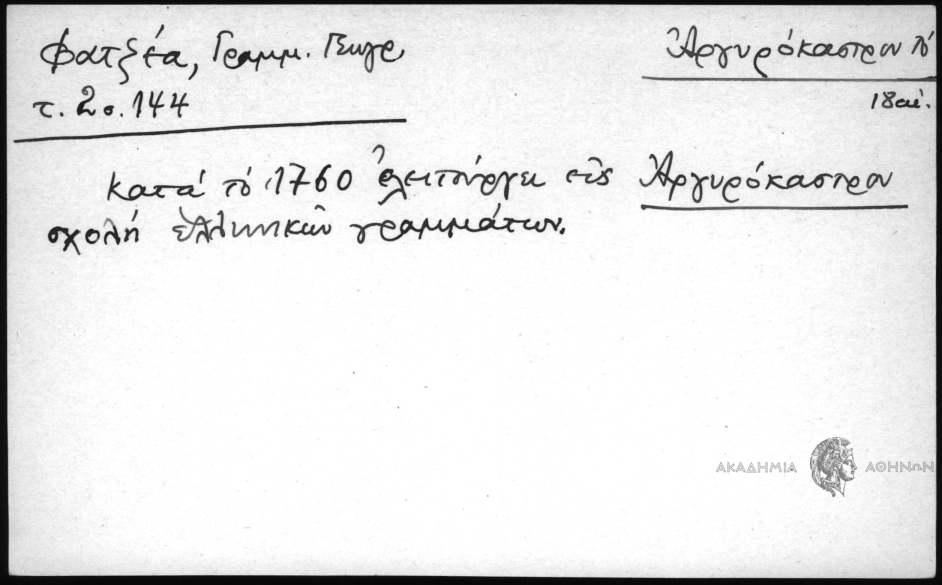 Φατζέα, Γραμμ. Γεωγρ.
τ. 2 σ. 144
Ἀργυρόκαστρον τό
18 αἰ.
Κατά τό 1760 ἐλειτούργει εἰς Ἀργυρόκαστρον
σχολή ἑλληνικῶν γραμμάτων.
ΑΚΑΔΗΜΙΑ ΑΘΗΝΩΝ